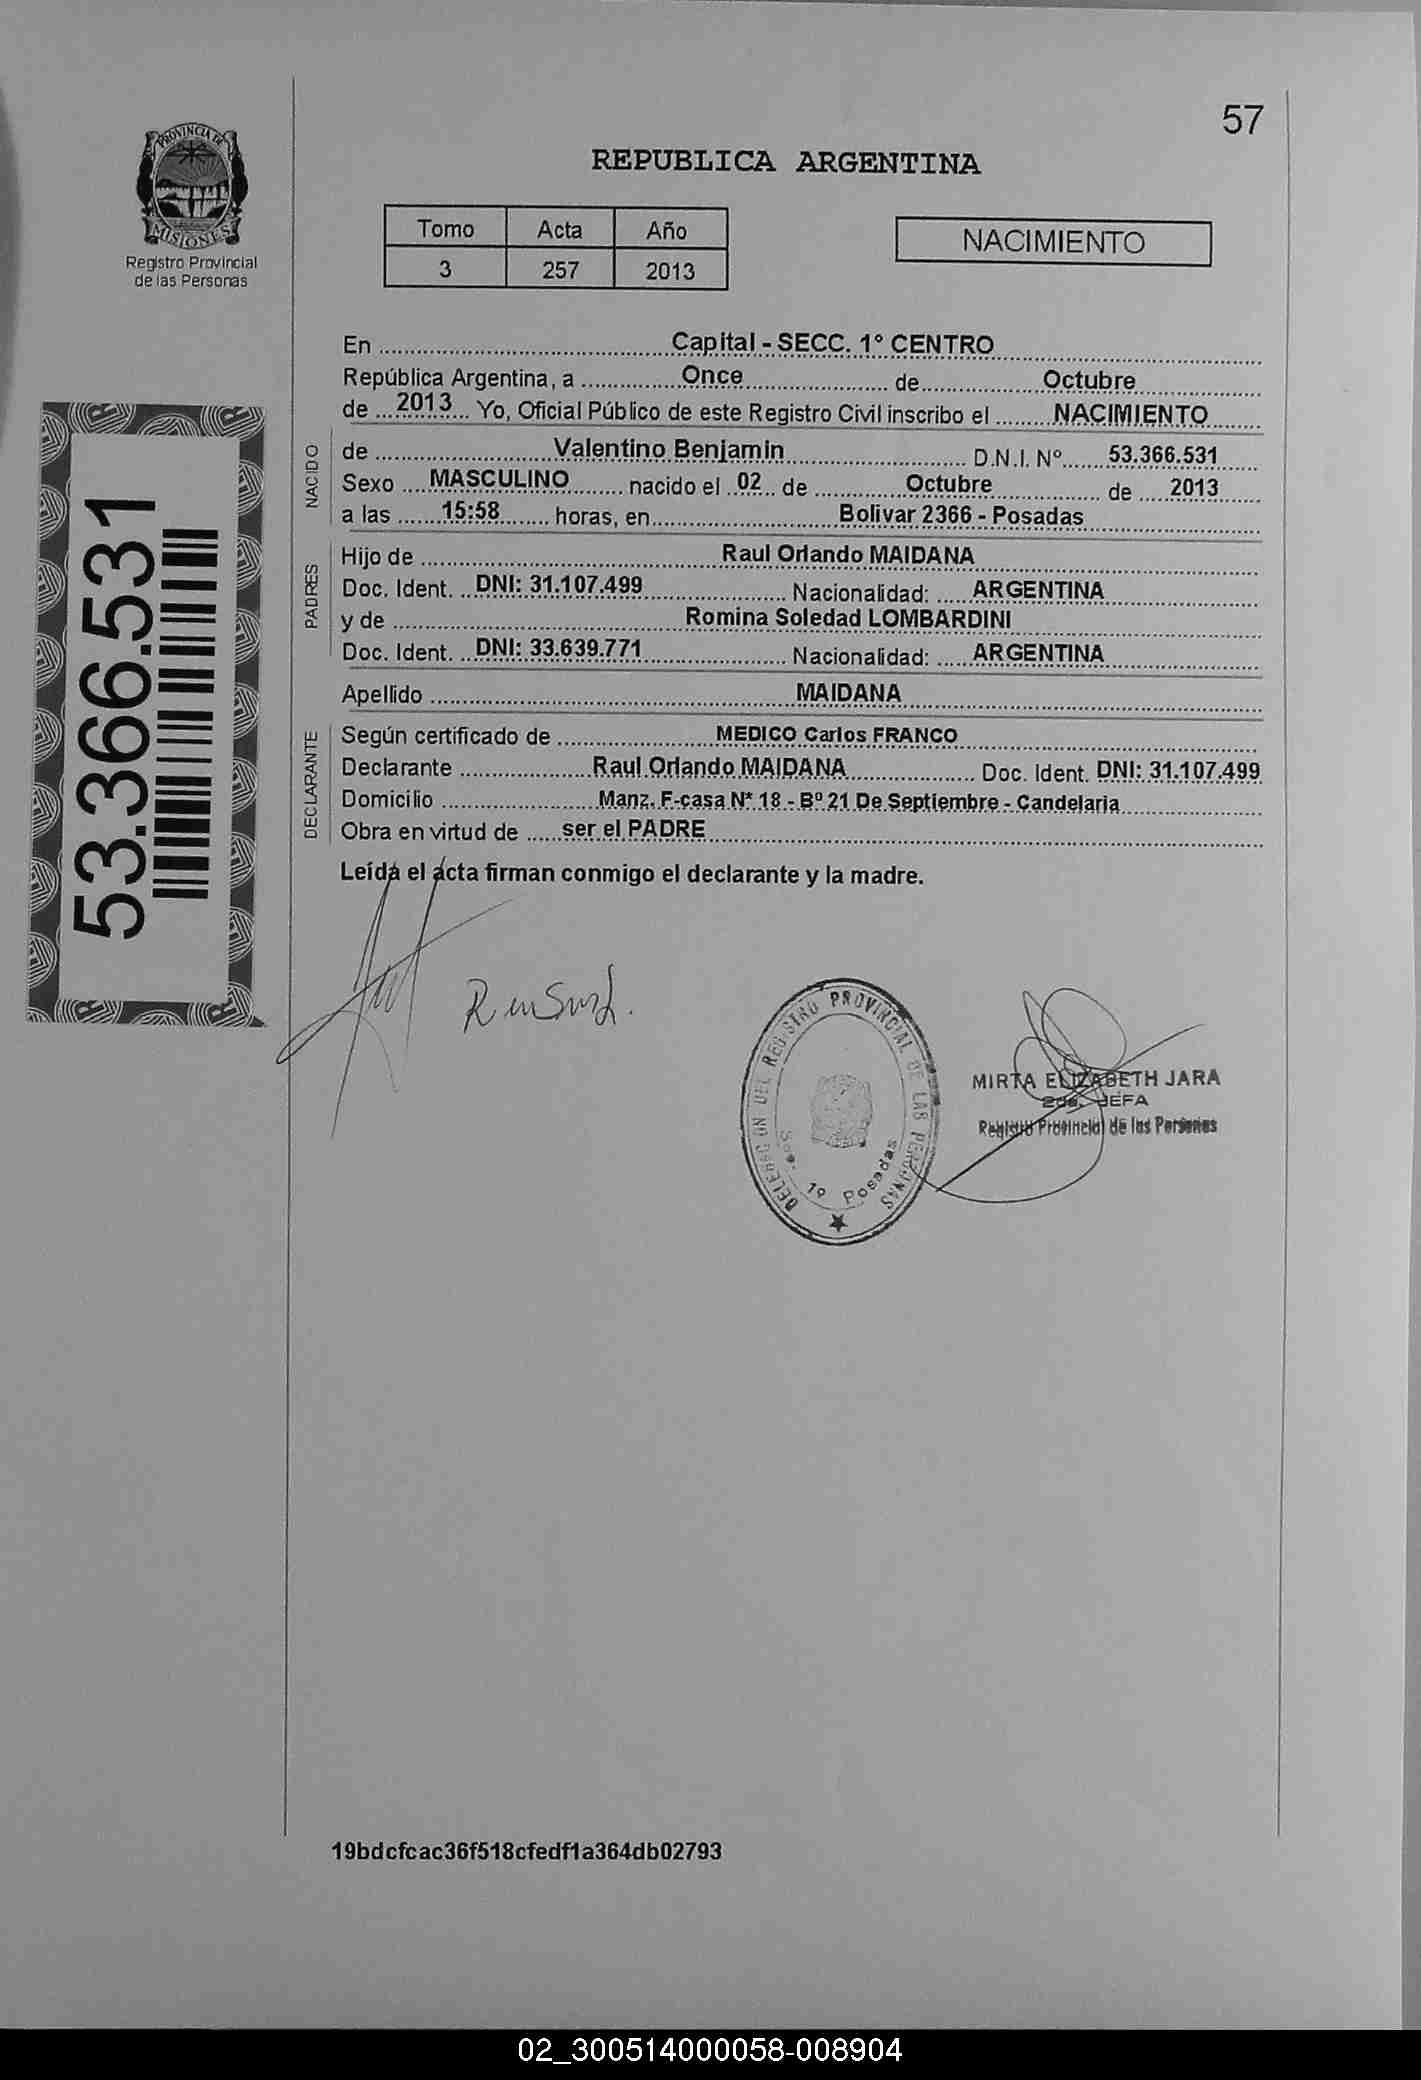 57
PROVINCIA DE
MISIONES
Registro Provincial
de las Personas
REPUBLICA ARGENTINA
Tomo Acta Año
3 257 2013
NACIMIENTO
En Capital - SECC. 1° CENTRO
República Argentina, a Once de Octubre
de 2013 Yo, Oficial Público de este Registro Civil inscribo el NACIMIENTO
NACIDO
de Valentino Benjamin D.N.I. Nº 53.366.531
Sexo MASCULINO nacido el 02 de Octubre de 2013
a las 15:58 horas, en Bolivar 2366 - Posadas
PADRES
Hijo de Raul Orlando MAIDANA
Doc. Ident. DNI: 31.107.499 Nacionalidad: ARGENTINA
y de Romina Soledad LOMBARDINI
Doc. Ident. DNI: 33.639.771 Nacionalidad: ARGENTINA
Apellido MAIDANA
DECLARANTE
Según certificado de MEDICO Carlos FRANCO
Declarante Raul Orlando MAIDANA Doc. Ident. DNI: 31.107.499
Domicilio Manz. F-casa N* 18 - Bº 21 De Septiembre - Candelaria
Obra en virtud de ser el PADRE
Leída el acta firman conmigo el declarante y la madre.
53.366.531
DELEGACION DEL REGISTRO PROVINCIAL DE LAS PERSONAS
Sec. 1º Posadas
MIRTA ELIZABETH JARA
2da. JEFA
Registro Provincial de las Personas
19bdcfcac36f518cfedf1a364db02793
02_300514000058-008904